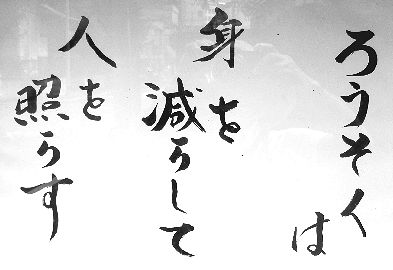 ろうそくは
身を
減らして
人を
照らす